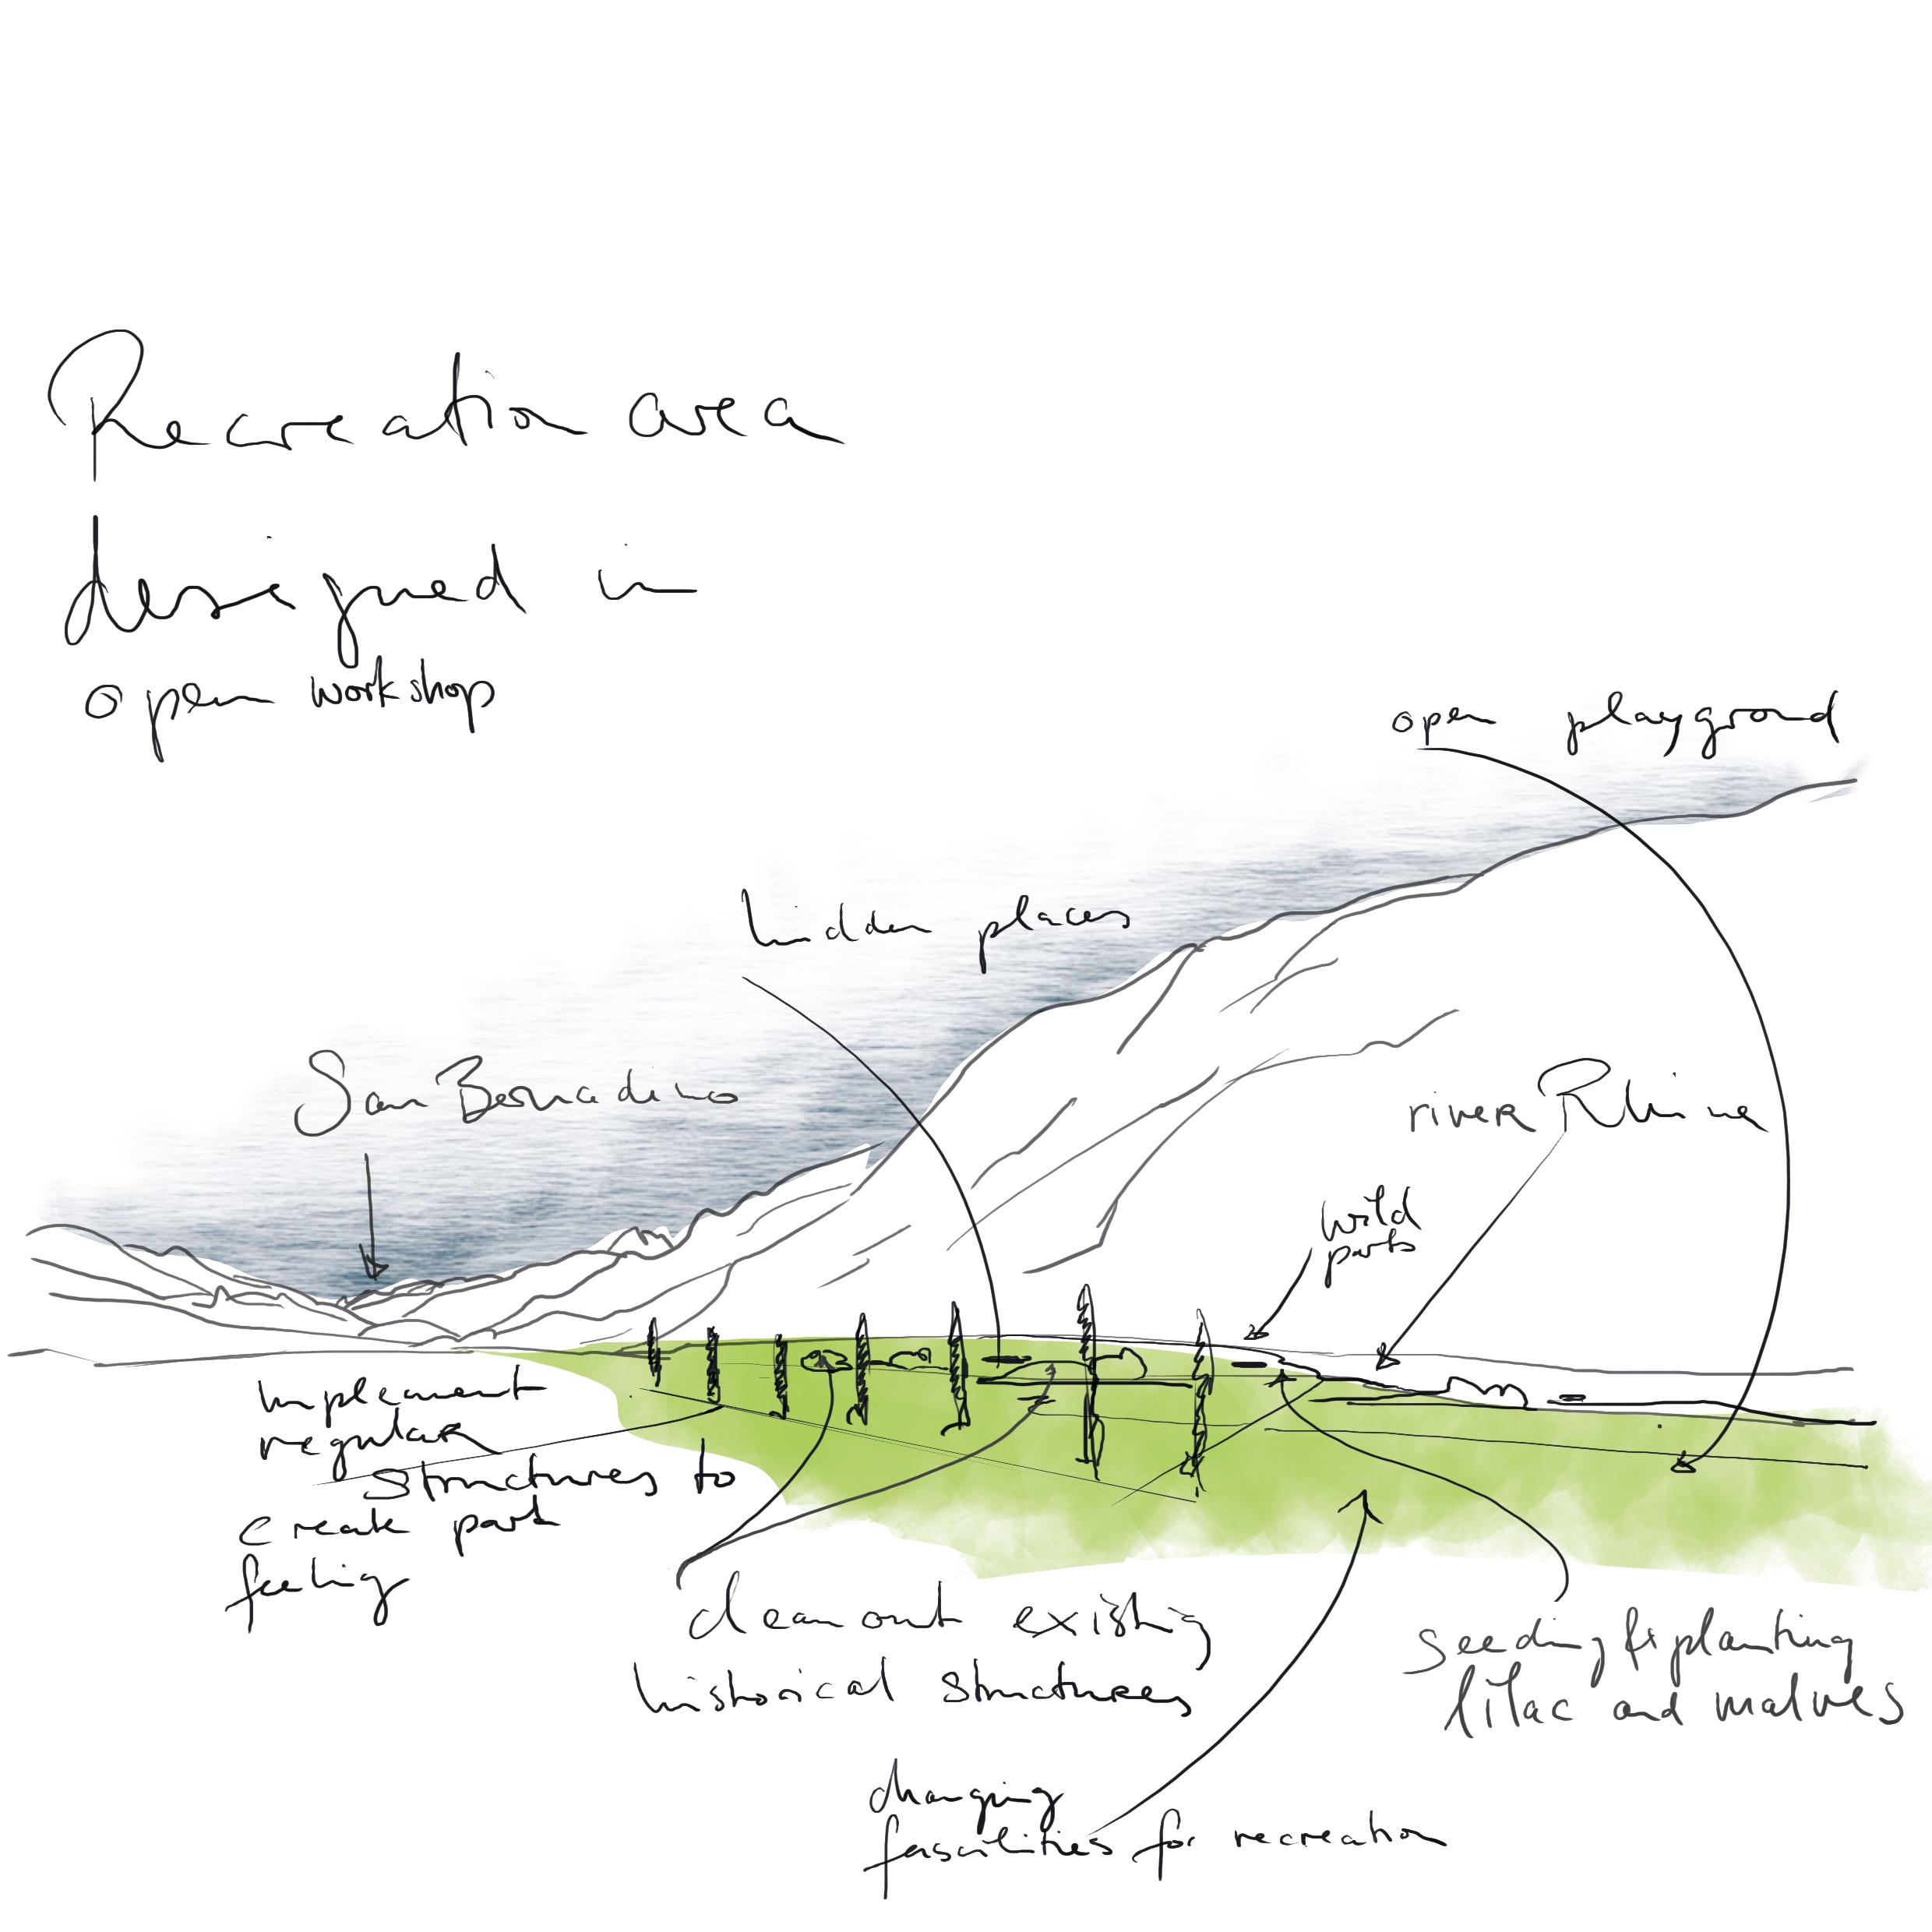 Recreation area
designed in
open workshop
open playground
hidden places
San Bernadino
river Rhine
wild
parts
implement
regular
structures to
create park
feeling
clean out existing
historical structures
seeding & planting
lilac and malves
changing
fascilities for recreation